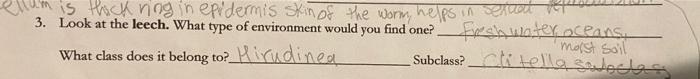 is thick ring in epidermis skin of the worm, helps in sexual
3. Look at the leech. What type of environment would you find one? Freshwater, oceans,
moist soil
What class does it belong to? Hirudinea Subclass? Clitella subclass